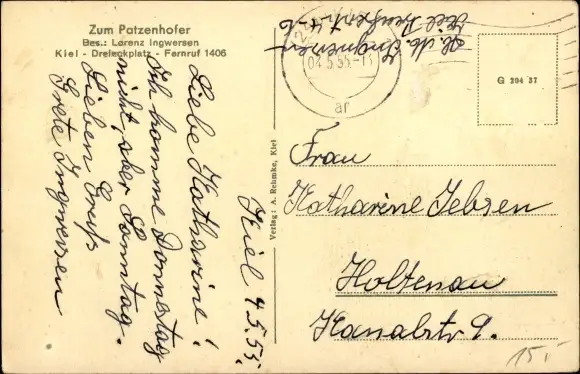 Zum Patzenhofer
Bes.: Lorenz Ingwersen
Kiel - Dreieckplatz - Fernruf 1406
Kiel 4.5.55.
Liebe Katharine!
Ich komme Donnerstag
nicht, aber Sonntag.
Lieben Gruß
Grete Ingwersen
Verlag: A. Rehmke, Kiel
Ingwersen
Kiel
04.5.55.-17
ar
G 204 57
Frau
Katharine Jebsen
Holtenau
Kanalstr 9.
15,-